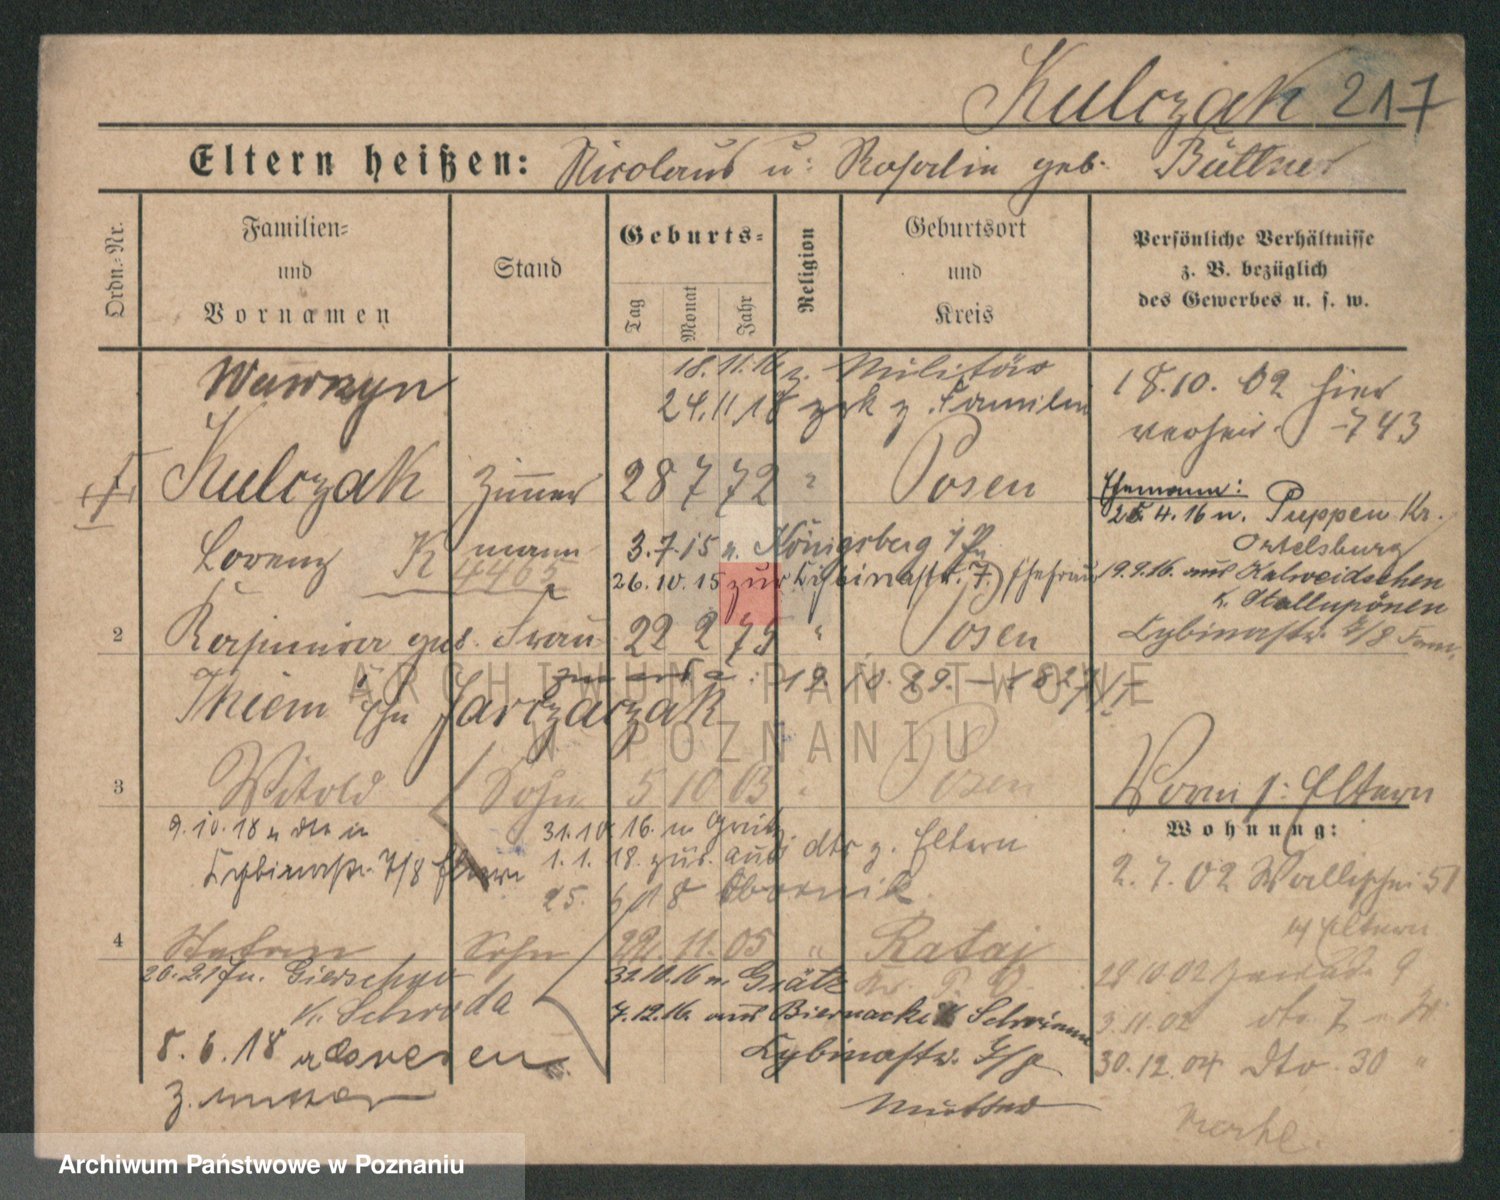 Kulczak 217
Eltern heißen: Nicolaus u: Rosalin geb. Büttner
Ordn.-Nr.
Familien-
und
Vornamen
Stand
Geburts-
Tag
Monat
Jahr
Religion
Geburtsort
und
Kreis
Persönliche Verhältnisse
z. B. bezüglich
des Gewerbes u. s. w.
Wawrzyn
18.11.16 z. Militär
24.11.18 zrk z. Familie
18.10.02 hier
verheir. 743
1
Kulczak Zimmer 28 7 72 Posen
Ehemann:
25.4.16 n. Puppen Kr.
Ortelsburg
Lorenz K 4465 mann
3.7.15 n. Königsberg
26.10.15 zur. Cybinastr. 7. Ehefrau
9.9.16. aus Kalweidschen
K. Stallupönen
Cybinastr. 7/8 Fam.
2
Kasimira geb. Frau 22 2 75 " Posen
Thiem Jarczaczak
3
Witold Sohn 5 10 03 " Posen
Vorm s: Eltern
Wohnung:
9.10.18
Cybinastr. 7/8 Eltern
31.10.16. n Grätz
1.1.18. zur. aus dto z. Eltern
25. 6 18 Obornik
2.7.02 Wallischei 51
b/ Eltern
4
Stefan Sohn 22. 11. 05 " Rataj
Kr. P. O.
26.2.17 n. Gierschau
K. Schroda
31.10.16 n. Grätz
7.12.16. aus Biernacki K Schrimm
Cybinastr. 7/8
Mutter
8.6.18
z. Mutter
28 10 02
3.11.02 dto 7
30.12.04 dto. 30 "
ARCHIWUM PAŃSTWOWE
W POZNANIU
Archiwum Państwowe w Poznaniu